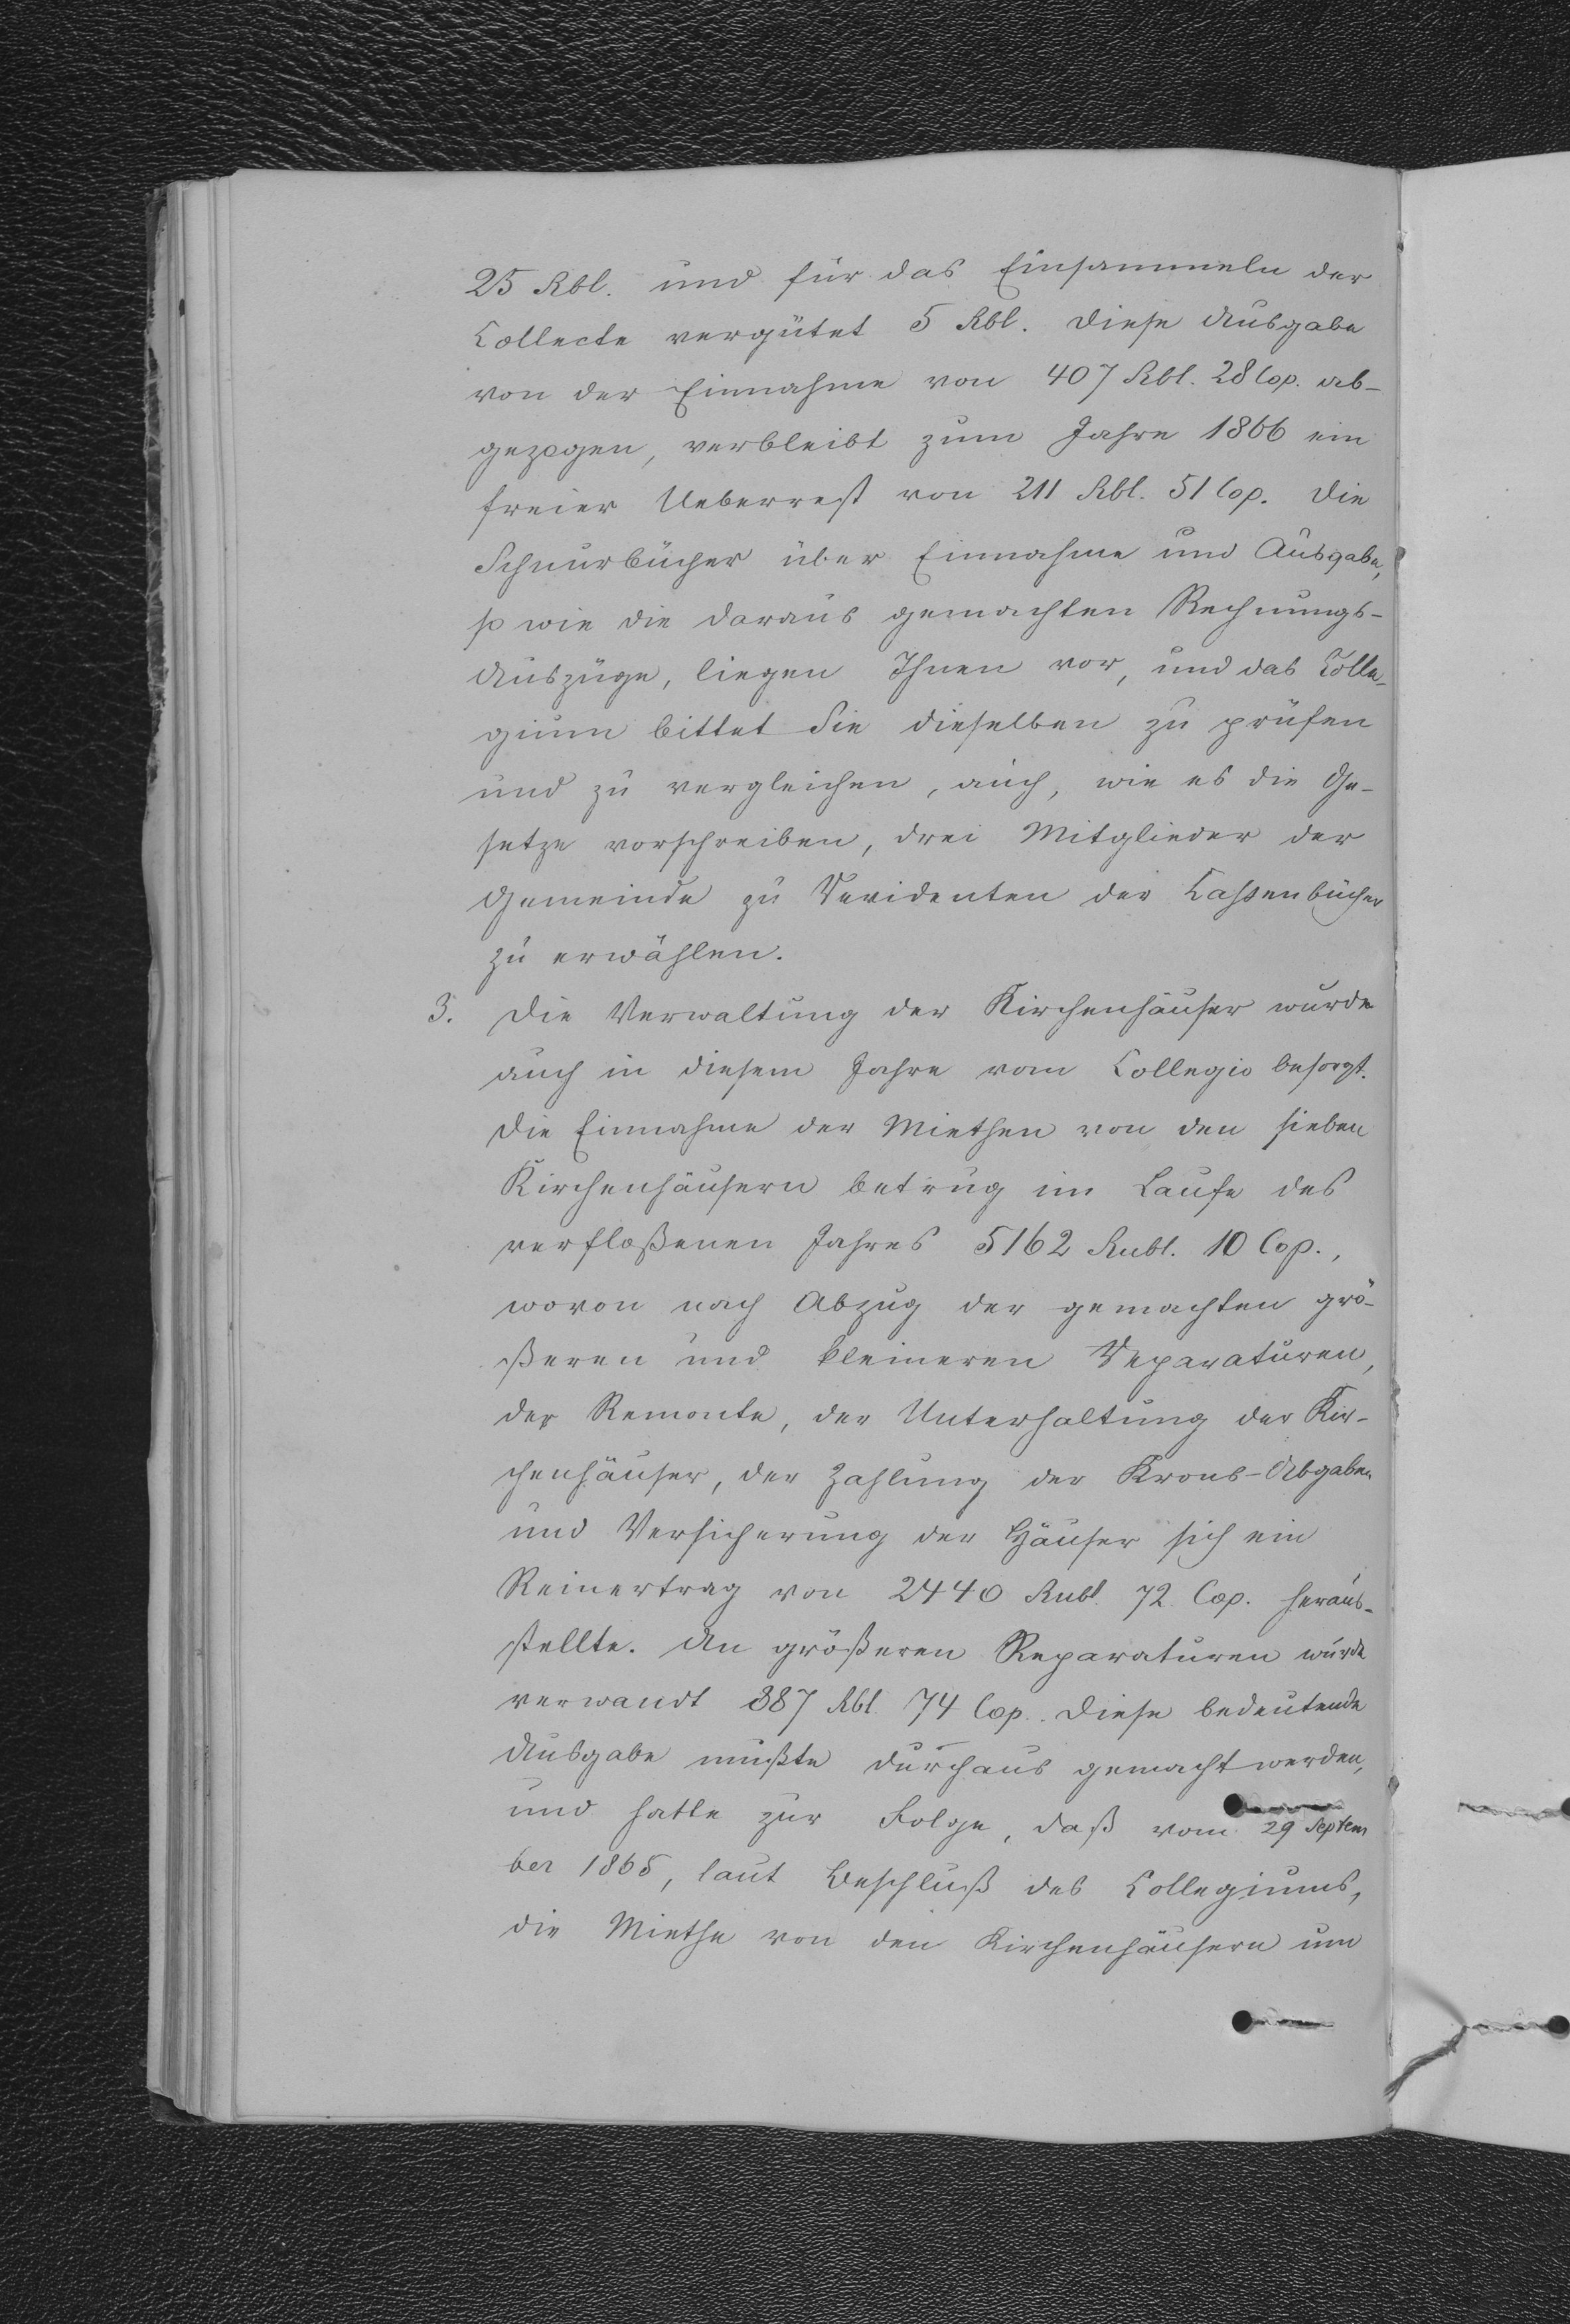 25 Rbl. und für das Einsammeln der
Collecte vergütet 5 Rbl. Diese Ausgabe
von der Einnahme von 407 Rbl. 28 Cop. ab-
gezogen, verbleibt zum Jahre 1866 ein
freier Ueberrest von 211 Rbl. 51 Cop. Die
Schnurbücher über Einnahme und Ausgabe,
so wie die daraus gemachten Rechnungs-
Auszüge, liegen Ihnen vor, und das Colle-
gium bittet Sie dieselben zu prüfen
und zu vergleichen, auch, wie es die Ge-
setze vorschreiben, drei Mitglieder der
Gemeinde zu Revidenten der Cassenbücher
zu erwählen.
3. Die Verwaltung der Kirchenhäuser wurde
auch in diesem Jahre vom Collegio besorgt.
Die Einnahme der Miethen von den sieben
Kirchenhäusern betrug im Laufe des
verfloßenen Jahres 5162 Rubl. 10 Cop.,
wovon nach Abzug der gemachten grö-
ßeren und kleineren Reparaturen,
der Remonte, der Unterhaltung der Kir-
chenhäuser, der Zahlung der Krons-Abgaben
und Versicherung der Häuser sich ein
Reinertrag von 2440 Rubl. 72 Cop. heraus-
stellte. An größeren Reparaturen wurde
verwandt 887 Rbl. 74 Cop. Diese bedeutende
Ausgabe mußte durchaus gemacht werden,
und hatte zur Folge, daß vom 29 Septem
ber 1865, laut Beschluß des Collegiums,
die Miethe von den Kirchenhäusern um